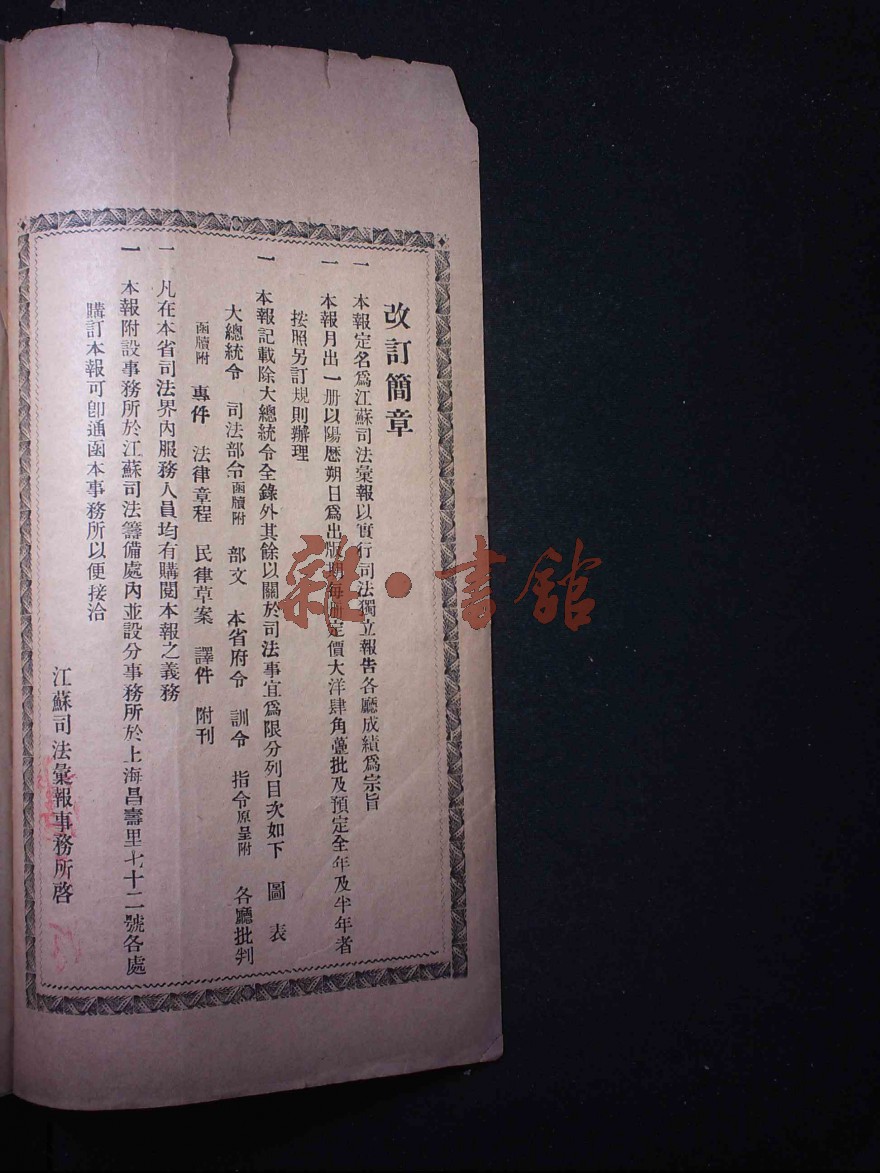 改訂簡章
一 本報定名爲江蘇司法彙報以實行司法獨立報告各廳成績爲宗旨
一 本報月出一册以陽歷朔日爲出版期每册定價大洋肆角躉批及預定全年及半年者
按照另訂規則辦理
一 本報記載除大總統令全錄外其餘以關於司法事宜爲限分列目次如下 圖 表
大總統令 司法部令函牘附 部文 本省府令 訓令 指令原呈附 各廳批判
函牘附 專件 法律章程 民律草案 譯件 附刊
一 凡在本省司法界內服務人員均有購閱本報之義務
一 本報附設事務所於江蘇司法籌備處內並設分事務所於上海昌壽里七十二號各處
購訂本報可卽通函本事務所以便接洽
江蘇司法彙報事務所啓
雜·書館